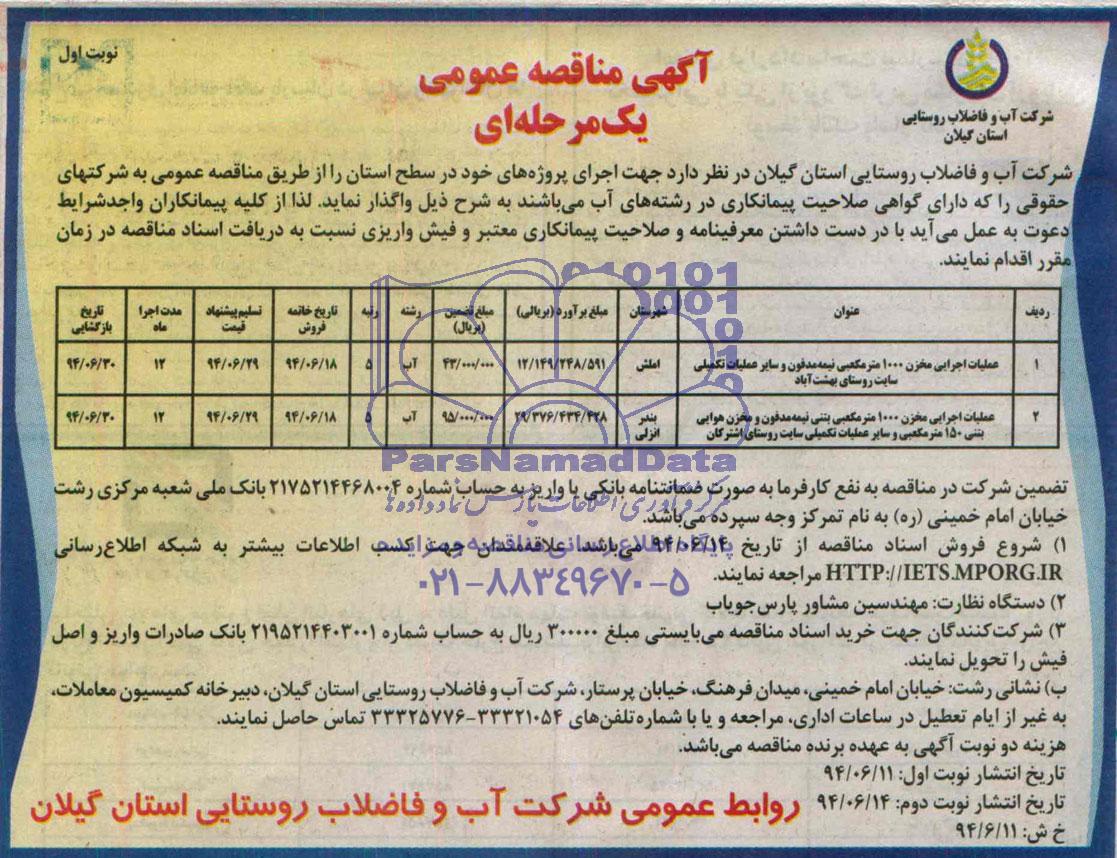 نوبت اول
آگهی مناقصه عمومی
یک‌مرحله‌ای
شرکت آب و فاضلاب روستایی
استان گیلان
شرکت آب و فاضلاب روستایی استان گیلان در نظر دارد جهت اجرای پروژه‌های خود در سطح استان را از طریق مناقصه عمومی به شرکتهای
حقوقی را که دارای گواهی صلاحیت پیمانکاری در رشته‌های آب می‌باشند به شرح ذیل واگذار نماید. لذا از کلیه پیمانکاران واجدشرایط
دعوت به عمل می‌آید با در دست داشتن معرفینامه و صلاحیت پیمانکاری معتبر و فیش واریزی نسبت به دریافت اسناد مناقصه در زمان
مقرر اقدام نمایند.
ردیف عنوان شهرستان مبلغ برآورد (بریالی) مبلغ تضمین (بریال) رشته رتبه تاریخ خاتمه فروش تسلیم پیشنهاد قیمت مدت اجرا ماه تاریخ بازگشایی
۱ عملیات اجرایی مخزن ۱۰۰۰ مترمکعبی نیمه‌مدفون و سایر عملیات تکمیلی املش ۱۲/۱۴۹/۲۴۸/۵۹۱ ۴۳/۰۰۰/۰۰۰ آب ۵ ۹۴/۰۶/۱۸ ۹۴/۰۶/۲۹ ۱۲ ۹۴/۰۶/۳۰
سایت روستای بهشت‌آباد
۲ عملیات اجرایی مخزن ۱۰۰۰ مترمکعبی بتنی نیمه‌مدفون و مخزن هوایی بندر انزلی ۲۹/۳۷۶/۴۳۴/۴۲۸ ۹۵/۰۰۰/۰۰۰ آب ۵ ۹۴/۰۶/۱۸ ۹۴/۰۶/۲۹ ۱۲ ۹۴/۰۶/۳۰
بتنی ۱۵۰ مترمکعبی و سایر عملیات تکمیلی سایت روستای اشترکان
ParsNamadData
مرکز فرآوری اطلاعات پارس نماد داده‌ها
تضمین شرکت در مناقصه به نفع کارفرما به صورت ضمانتنامه بانکی یا واریز به حساب شماره ۲۱۷۵۲۱۴۴۶۸۰۰۴ بانک ملی شعبه مرکزی رشت
خیابان امام خمینی (ره) به نام تمرکز وجه سپرده می‌باشد.
۱) شروع فروش اسناد مناقصه از تاریخ ۹۴/۰۶/۱۴ می‌باشد. علاقه‌مندان جهت کسب اطلاعات بیشتر به شبکه اطلاع‌رسانی
HTTP://IETS.MPORG.IR مراجعه نمایند.
پایگاه اطلاع رسانی مناقصه و مزایده
۰۲۱-۸۸۳۴۹۶۷۰-۵
۲) دستگاه نظارت: مهندسین مشاور پارس‌جویاب
۳) شرکت‌کنندگان جهت خرید اسناد مناقصه می‌بایستی مبلغ ۳۰۰۰۰۰ ریال به حساب شماره ۲۱۹۵۲۱۴۴۰۳۰۰۱ بانک صادرات واریز و اصل
فیش را تحویل نمایند.
ب) نشانی رشت: خیابان امام خمینی، میدان فرهنگ، خیابان پرستار، شرکت آب و فاضلاب روستایی استان گیلان، دبیرخانه کمیسیون معاملات،
به غیر از ایام تعطیل در ساعات اداری، مراجعه و یا با شماره تلفن‌های ۳۳۳۲۱۰۵۴-۳۳۳۲۵۷۷۶ تماس حاصل نمایند.
هزینه دو نوبت آگهی به عهده برنده مناقصه می‌باشد.
تاریخ انتشار نوبت اول: ۹۴/۰۶/۱۱
تاریخ انتشار نوبت دوم: ۹۴/۰۶/۱۴
خ ش: ۹۴/۶/۱۱
روابط عمومی شرکت آب و فاضلاب روستایی استان گیلان